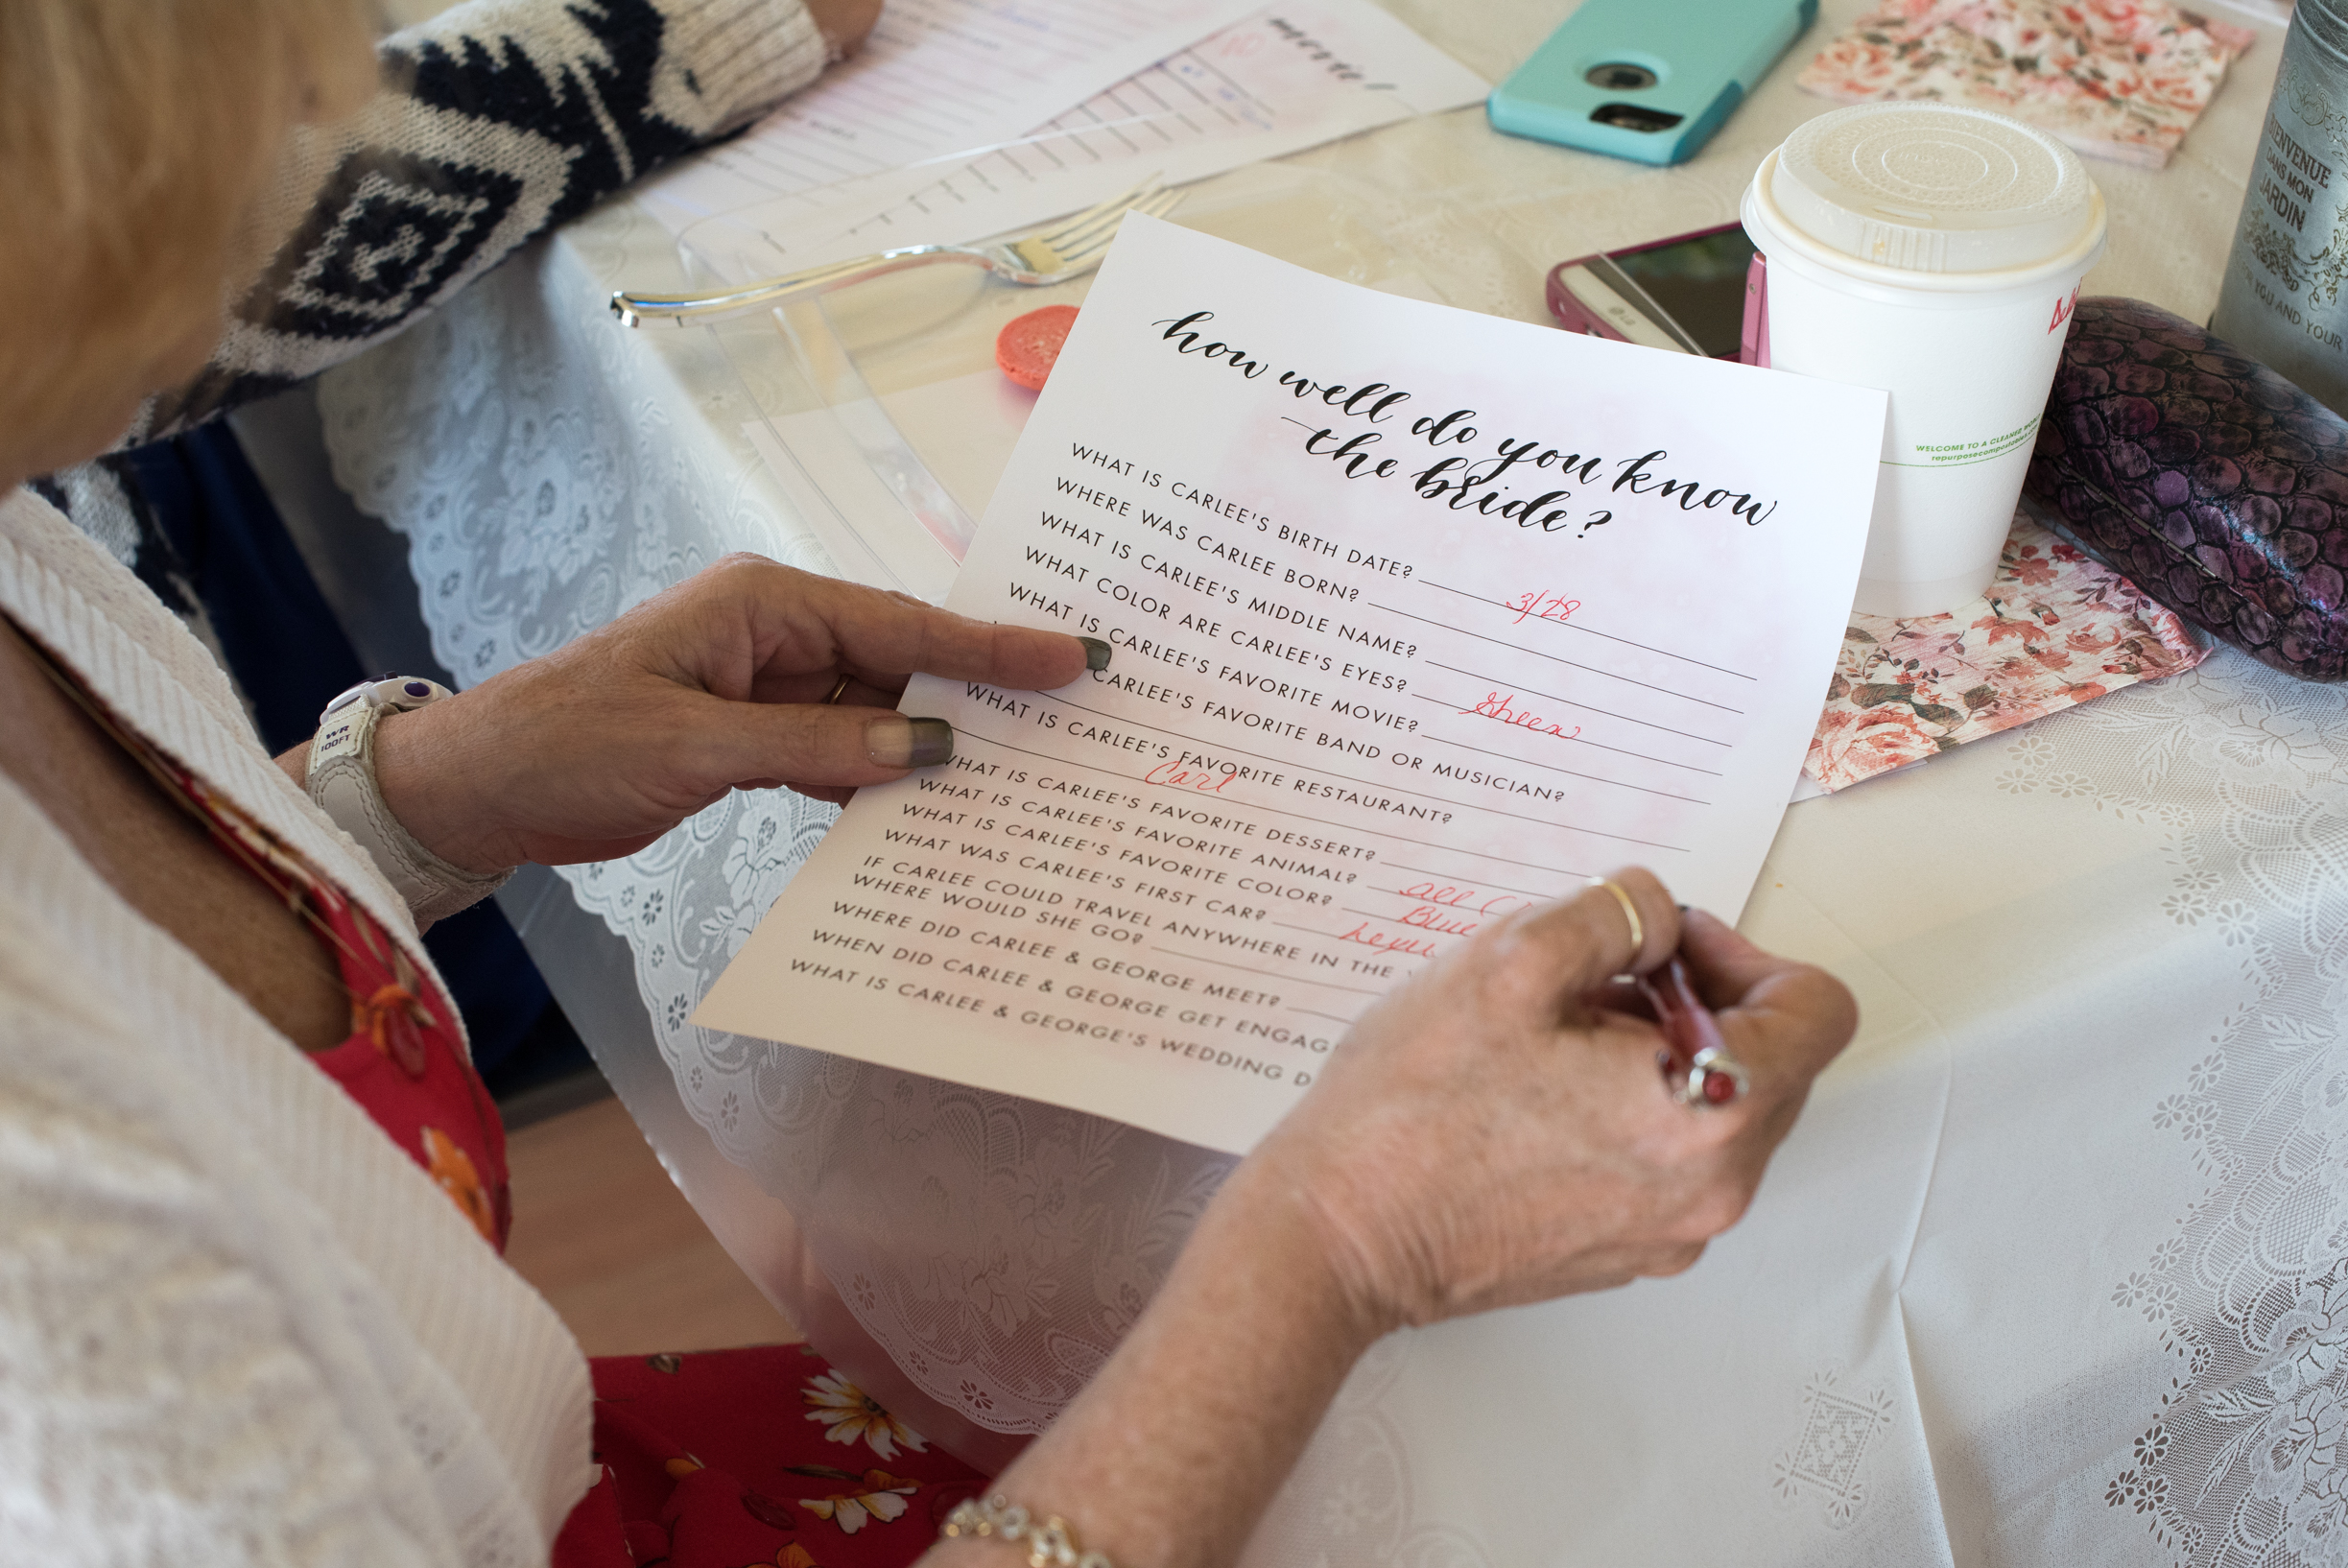 movie!
BIENVENUE
DANS MON
JARDIN
YOU AND YOUR
LG
WELCOME TO A CLEANER
how well do you know
the bride?
WHAT IS CARLEE'S BIRTH DATE? 3/28
WHERE WAS CARLEE BORN?
WHAT IS CARLEE'S MIDDLE NAME?
WHAT COLOR ARE CARLEE'S EYES? Green
WHAT IS CARLEE'S FAVORITE MOVIE?
CARLEE'S FAVORITE BAND OR MUSICIAN?
WHAT IS CARLEE'S FAVORITE RESTAURANT?
Carl
WHAT IS CARLEE'S FAVORITE DESSERT?
WHAT IS CARLEE'S FAVORITE ANIMAL? all
WHAT IS CARLEE'S FAVORITE COLOR? Blue
WHAT WAS CARLEE'S FIRST CAR?
IF CARLEE COULD TRAVEL ANYWHERE IN THE
WHERE WOULD SHE GO?
WHERE DID CARLEE & GEORGE MEET?
WHEN DID CARLEE & GEORGE GET ENGAG
WHAT IS CARLEE & GEORGE'S WEDDING D
WR
100FT